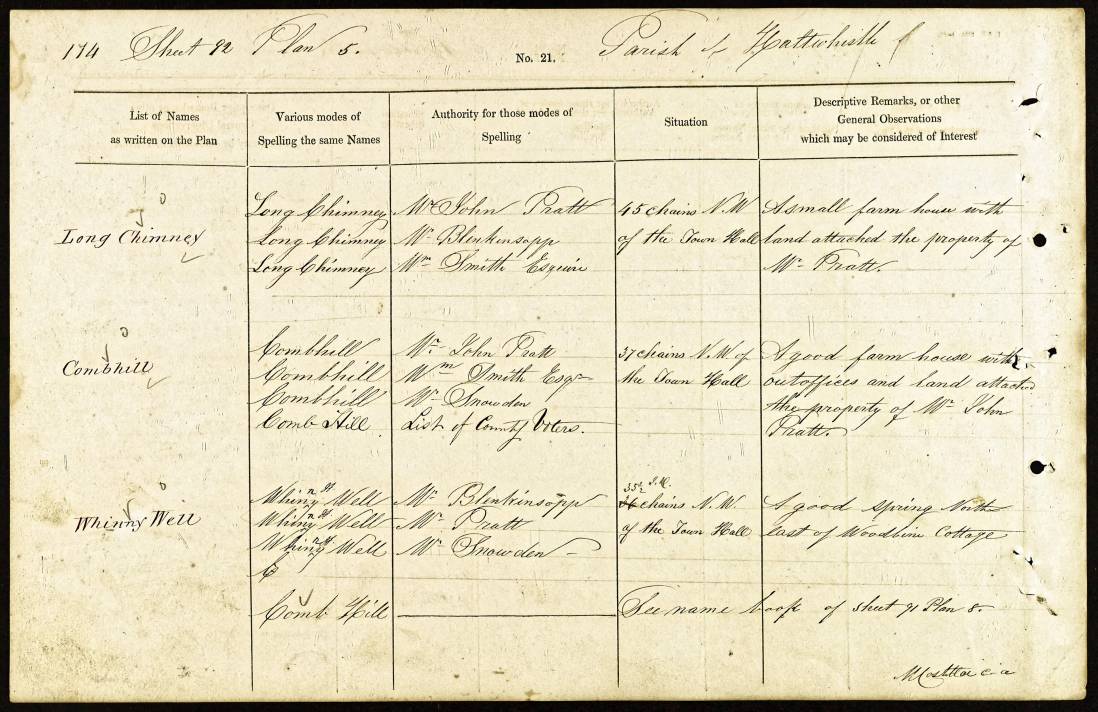 174 Sheet 92 Plan 5. No. 21. Parish of Haltwhistle
List of Names
as written on the Plan
Various modes of
Spelling the same Names
Authority for those modes of
Spelling
Situation
Descriptive Remarks, or other
General Observations
which may be considered of Interest
Long Chimney
Long Chimney Mr John Pratt 45 chains N.W A small farm house with
Long Chimney Mr Blenkinsopp of the Town Hall land attached the property of
Long Chimney Wm Smith Esquire Mr Pratt.
Combhill
Combhill Mr John Pratt 37 chains N.W of A good farm house with
Combhill Wm Smith Esqr the Town Hall outoffices and land attached
Combhill Mr Snowden the property of Mr John
Comb Hill List of County Voters. Pratt.
Whinny Well
35½
Whinny Well Mr Blenkinsopp 36 chains N.W. A good spring North
Whinny Well Mr Pratt of the Town Hall East of Woodbine Cottage
Whinny Well Mr Snowden
C
Comb Hill See name book of sheet 91 Plan 8.